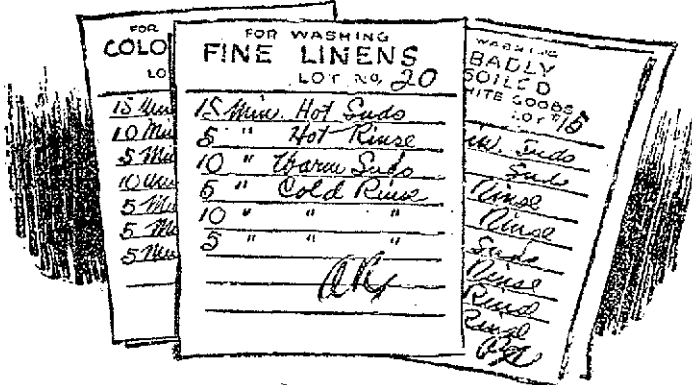 FOR
COLO
LO
15 Min
10 Min
5 Min
10 Min
5 Min
5 Min
5 Min
FOR WASHING
FINE LINENS
LOT No 20
15 Min. Hot Suds
5 " Hot Rinse
10 " Warm Suds
5 " Cold Rinse
10 " " "
5 " " "
WASHING
BADLY
SOILED
HITE GOODS
LOT # 15
Suds
Suds
Rinse
Rinse
Suds
Rinse
Rinse
Rinse